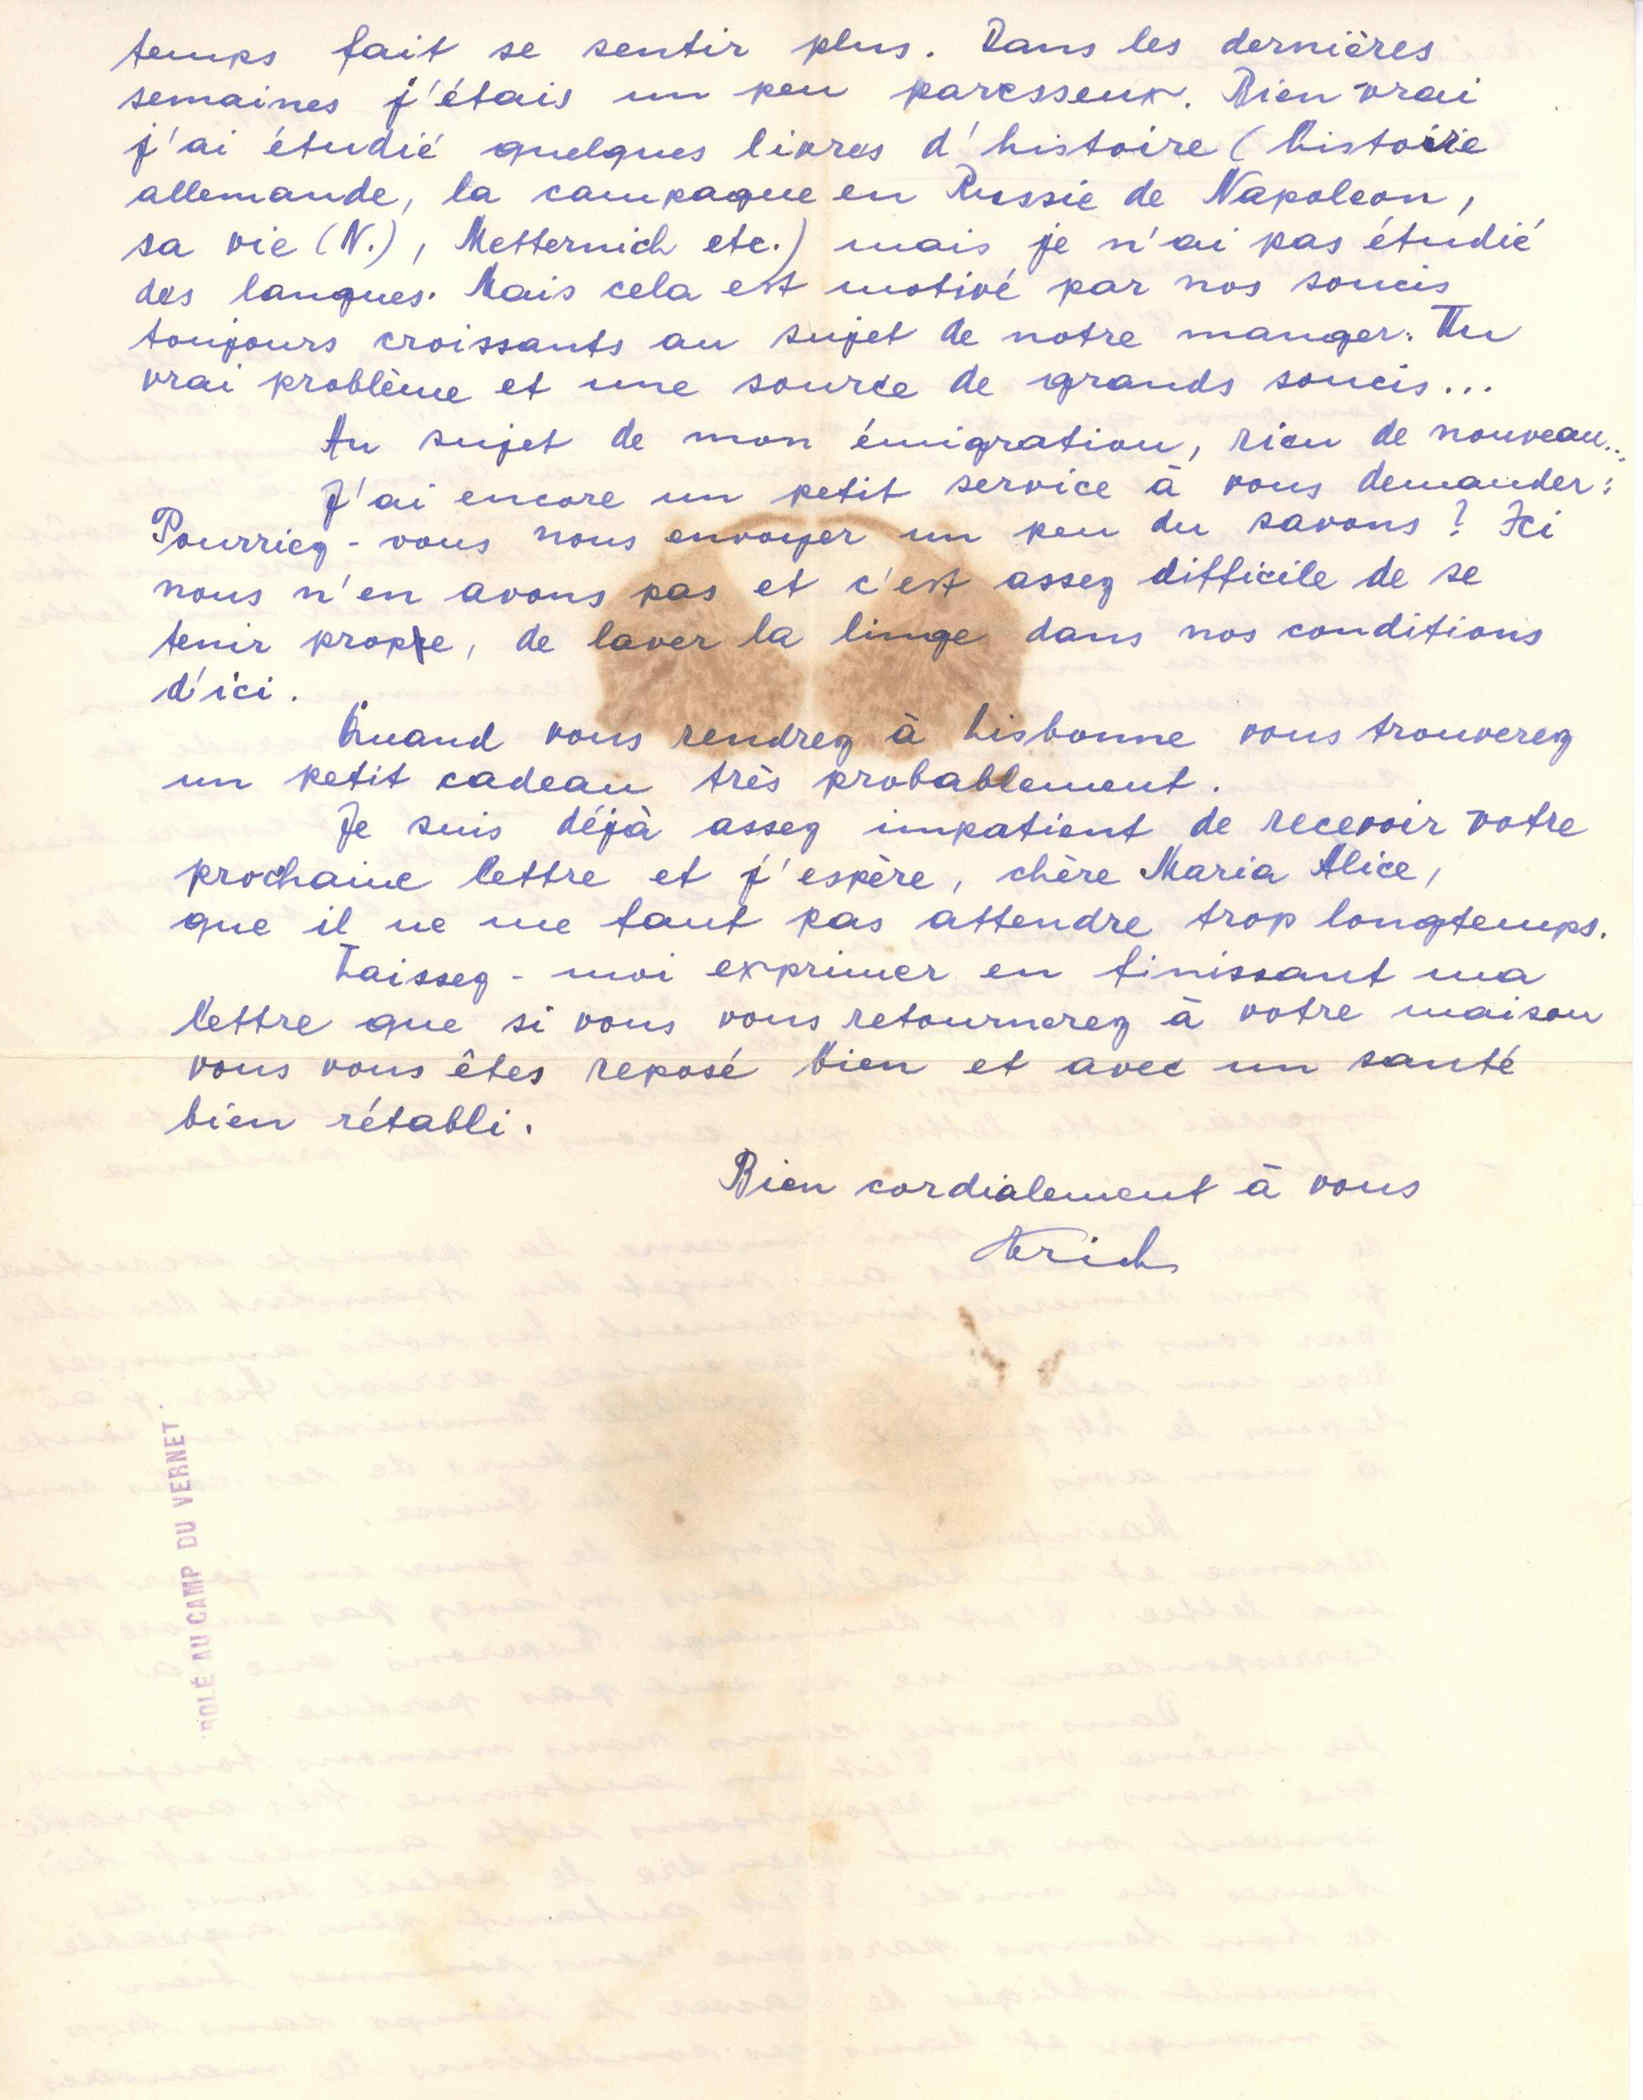 temps fait se sentir plus. Dans les dernières
semaines j'étais un peu paresseux. Bien vrai
j'ai étudié quelques livres d'histoire (histoire
allemande, la campagne en Russie de Napoleon,
sa vie (N.), Metternich etc.) mais je n'ai pas étudié
des langues. Mais cela est motivé par nos soucis
toujours croissants au sujet de notre manger. Un
vrai problème et une source de grands soucis...
Au sujet de mon émigration, rien de nouveau...
J'ai encore un petit service à vous demander:
Pourriez-vous nous envoyer un peu du savons? Ici
nous n'en avons pas et c'est assez difficile de se
tenir propre, de laver la linge dans nos conditions
d'ici.
Quand vous rendrez à Lisbonne vous trouverez
un petit cadeau très probablement.
Je suis déjà assez impatient de recevoir votre
prochaine lettre et j'espère, chère Maria Alice,
que il ne me faut pas attendre trop longtemps.
Laissez-moi exprimer en finissant ma
lettre que si vous vous retournerez à votre maison
vous vous êtes reposé bien et avec un santé
bien rétabli.
Bien cordialement à vous
Erich
ROLÉ AU CAMP DU VERNET.